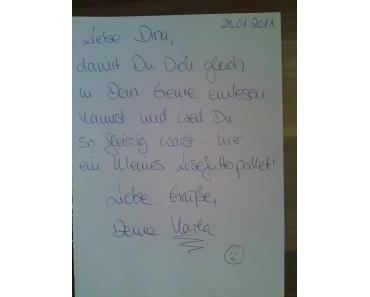 28.01.2011
Liebe Dina,
damit Du Dich gleich
in Dein Genre einlesen
kannst und weil Du
so fleissig warst - hier
ein kleines Lesefutterpaket!
Liebe Grüße,
Deine Karla